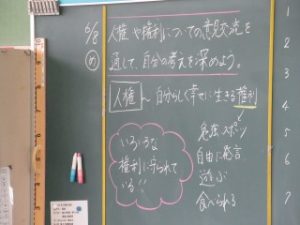 6/8
人権や権利についての意見交流を
通して、自分の考えを深めよう。
人権 〜 自分らしく幸せに生きる権利
いろいろな
権利に守られて
いる
自由に発言
遊ぶ
食べられる
1
2
3
4
5
6
7